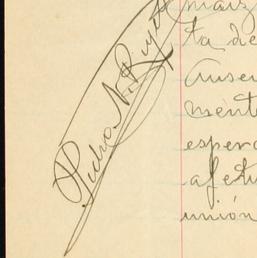 Pedro N. Ruiz
maiz
ta de
Ausen
ment
espera
afetu
unión